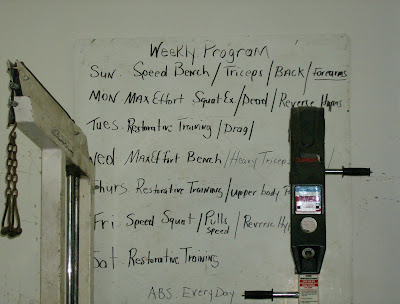 Weekly Program
Sun. Speed Bench/Triceps/Back/Forearms
Mon Max Effort Squat Ex/Dead/Reverse Hypers
Tues Restorative Training/Drag/
Wed Max Effort Bench/Heavy Triceps
Thurs Restorative Training/upper body
Fri Speed Squat/Pulls speed/Reverse Hyp
Sat Restorative Training
ABS Every Day